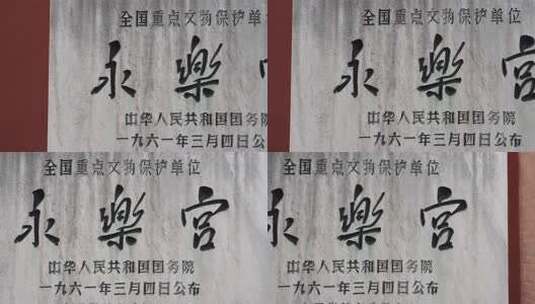 全国重点文物保护单位
永樂宫
中华人民共和国国务院
一九六一年三月四日公布
全国重点文物保护单位
永樂宫
中华人民共和国国务院
一九六一年三月四日公布
全国重点文物保护单位
永樂宫
中华人民共和国国务院
一九六一年三月四日公布
全国重点文物保护单位
永樂宫
中华人民共和国国务院
一九六一年三月四日公布